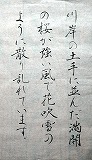 川岸の土手に並んだ満開
の桜が強い風で花吹雪の
ように散り乱れています。